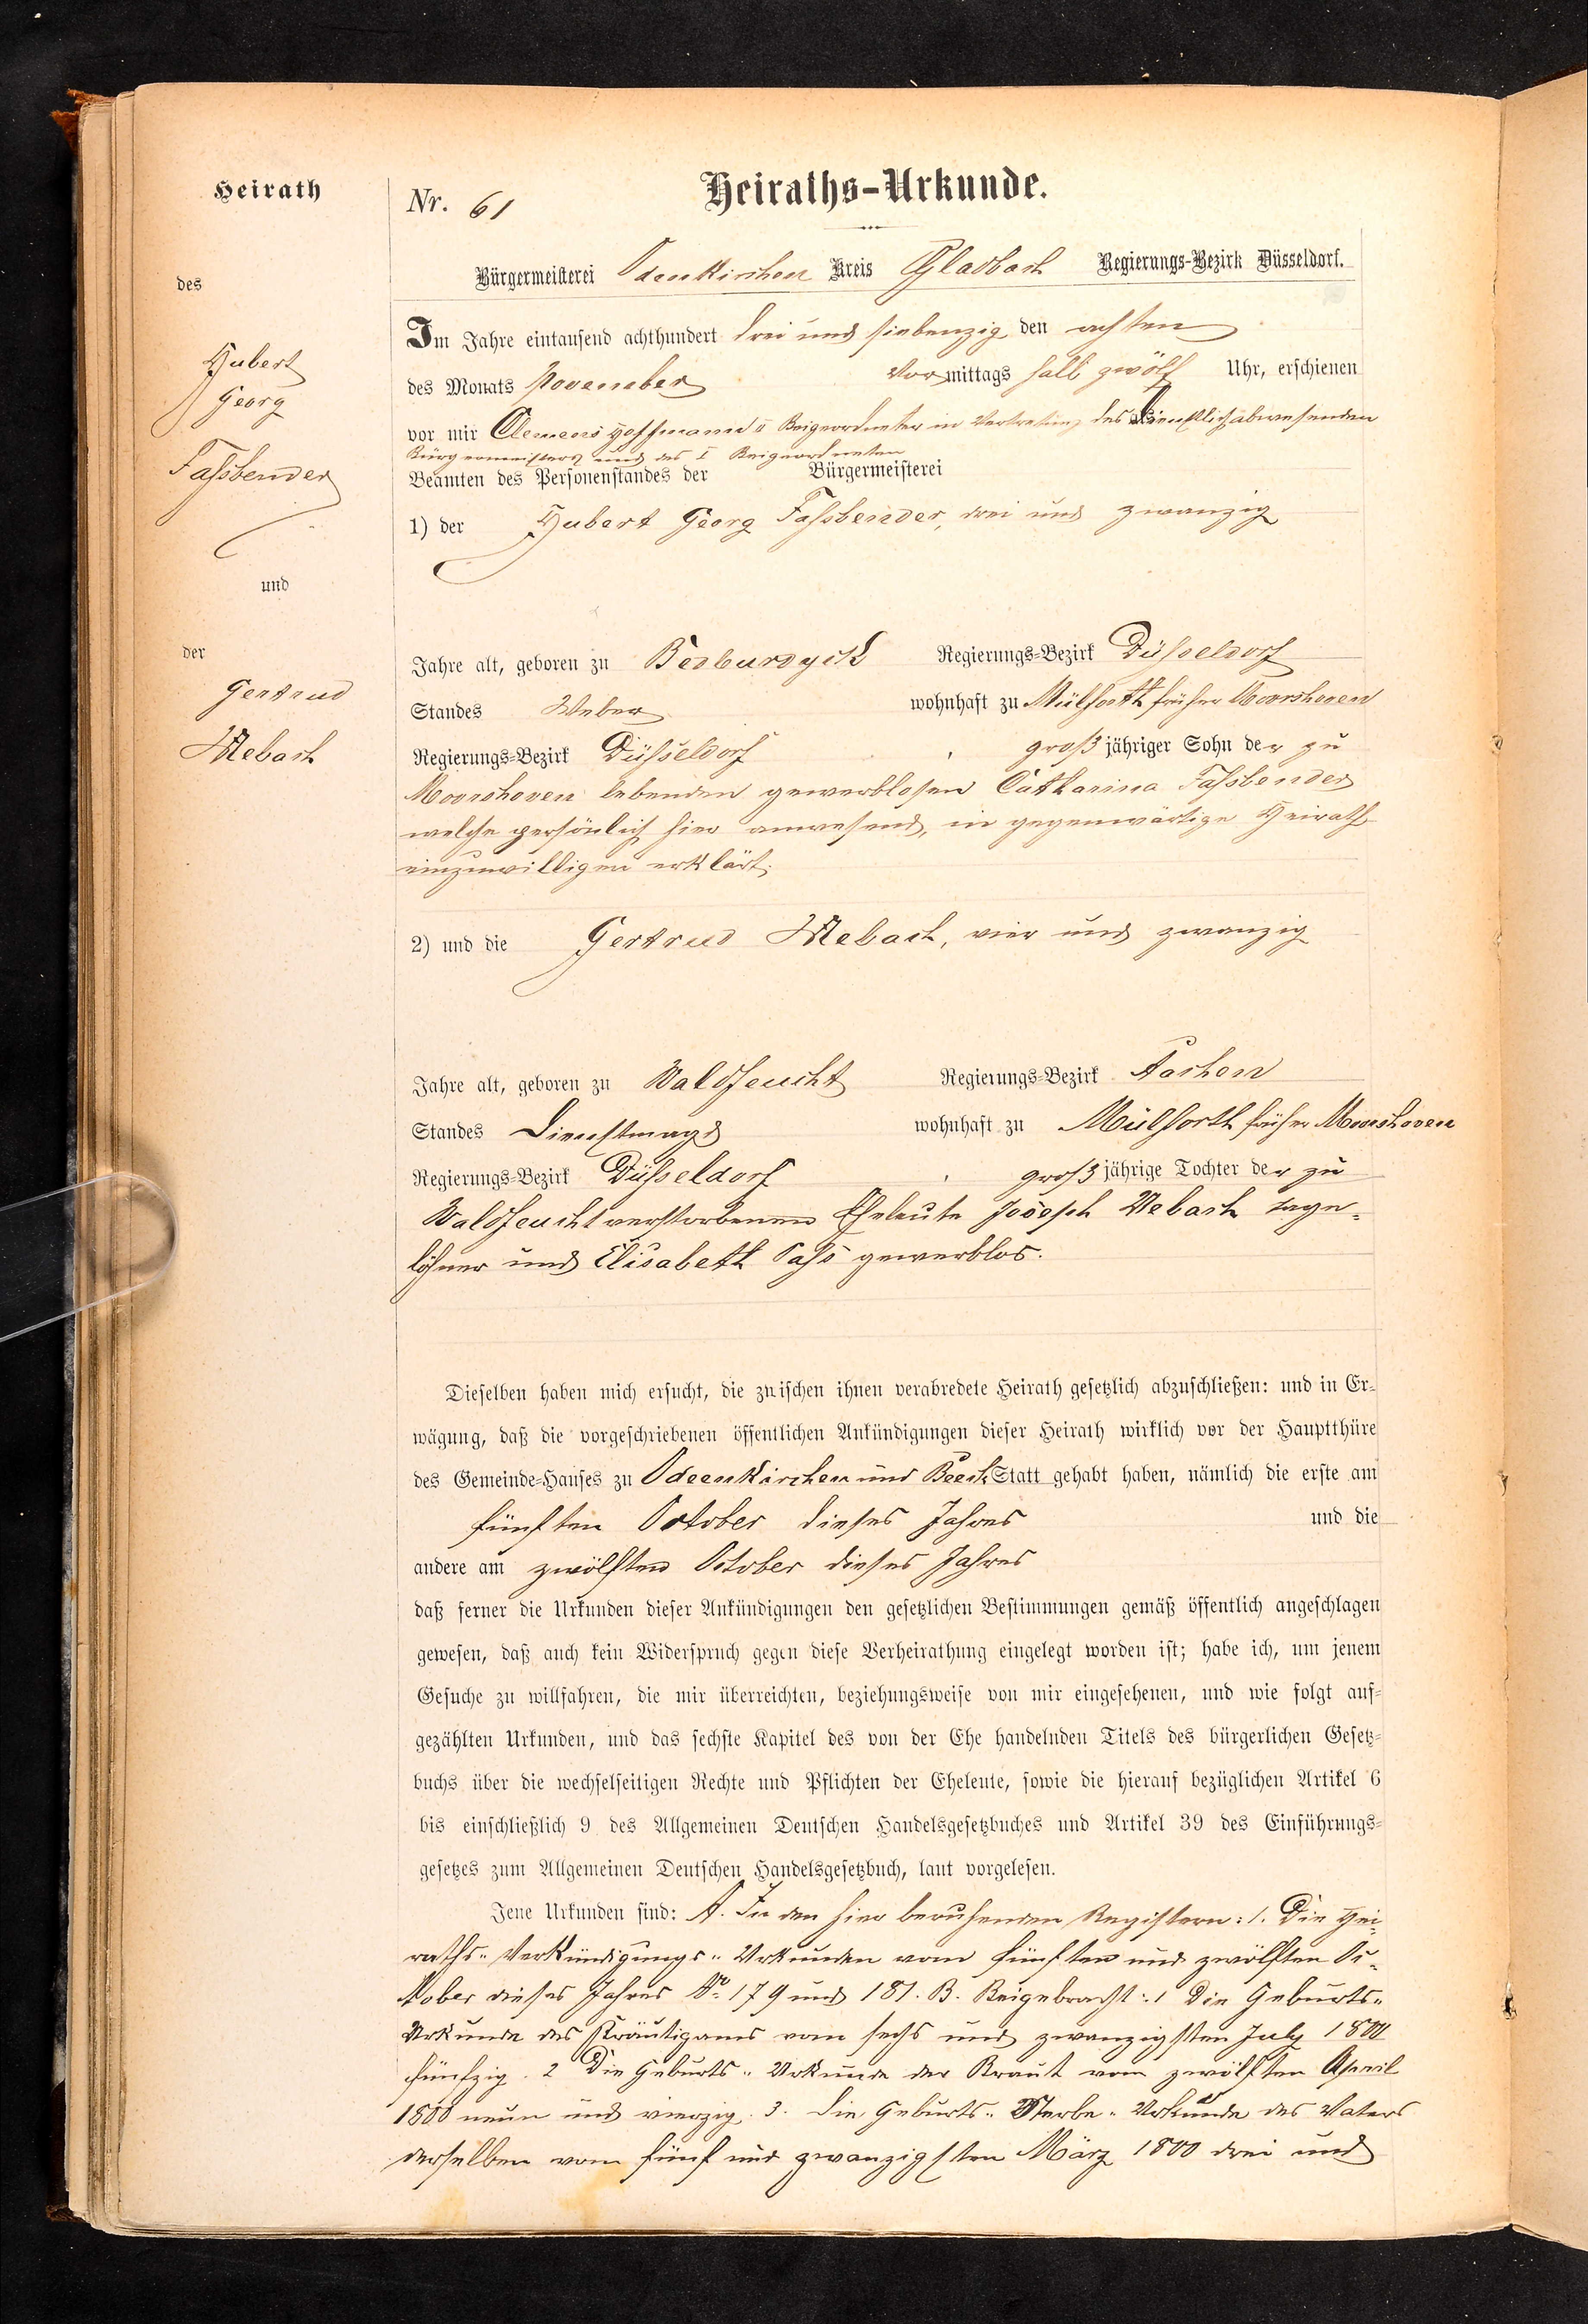 Heirath
des
Hubert
Georg
Fassbender
und
der
Gertrud
Mebach
Nr. 61
Heiraths-Urkunde.
Bürgermeisterei Odenkirchen Kreis Gladbach Regierungs-Bezirk Düsseldorf.
Im Jahre eintausend achthundert drei und siebenzig den achten
des Monats November Vormittags halb zwölf Uhr, erschienen
vor mir Clemens Hoffmann II Beigeordneter in Vertretung des dienstlich abwesenden
Bürgermeisters und des I Beigeordneten
Beamten des Personenstandes der Bürgermeisterei
1) der Hubert Georg Fassbender, drei und zwanzig
Jahre alt, geboren zu Bedburdyck Regierungs-Bezirk Düsseldorf
Standes Weber wohnhaft zu Mülforth früher Moorshoven
Regierungs-Bezirk Düsseldorf großjähriger Sohn der zu
Moorshoven lebenden gewerblosen Catharina Fassbender
welche persönlich hier anwesend, in gegenwärtige Heirath
einzuwilligen erklärt.
2) und die Gertrud Mebach, vier und zwanzig
Jahre alt, geboren zu Waldfeucht Regierungs-Bezirk Aachen
Standes Dienstmagd wohnhaft zu Mülforth früher Moorshoven
Regierungs-Bezirk Düsseldorf großjährige Tochter der zu
Waldfeucht verstorbenen Eheleute Joseph Mebach Tage-
löhner und Elisabeth gewerblos.
Dieselben haben mich ersucht, die zwischen ihnen verabredete Heirath gesetzlich abzuschließen: und in Er-
wägung, daß die vorgeschriebenen öffentlichen Ankündigungen dieser Heirath wirklich vor der Hauptthüre
des Gemeinde-Hauses zu Odenkirchen und Beeck Statt gehabt haben, nämlich die erste am
fünften October dieses Jahres und die
andere am zwölften October dieses Jahres
daß ferner die Urkunden dieser Ankündigungen den gesetzlichen Bestimmungen gemäß öffentlich angeschlagen
gewesen, daß auch kein Widerspruch gegen diese Verheirathung eingelegt worden ist; habe ich, um jenem
Gesuche zu willfahren, die mir überreichten, beziehungsweise von mir eingesehenen, und wie folgt auf-
gezählten Urkunden, und das sechste Kapitel des von der Ehe handelnden Titels des bürgerlichen Gesetz-
buchs über die wechselseitigen Rechte und Pflichten der Eheleute, sowie die hierauf bezüglichen Artikel 6
bis einschließlich 9 des Allgemeinen Deutschen Handelsgesetzbuches und Artikel 39 des Einführungs-
gesetzes zum Allgemeinen Deutschen Handelsgesetzbuch, laut vorgelesen.
Jene Urkunden sind: A. In den hier beruhenden Registern: 1. Die Hei-
raths-Verkündigungs-Urkunden vom fünften und zwölften Oc-
tober dieses Jahres No 179 und 181. B. Beigebracht: 1 Die Geburts-
Urkunde des Bräutigams vom sechs und zwanzigsten July 1800
fünfzig. 2 Die Geburts-Urkunde der Braut vom zwölften April
1800 neun und vierzig. 3. die Geburts-Sterbe-Urkunde des Vaters
derselben vom fünf und zwanzigsten März 1800 drei und